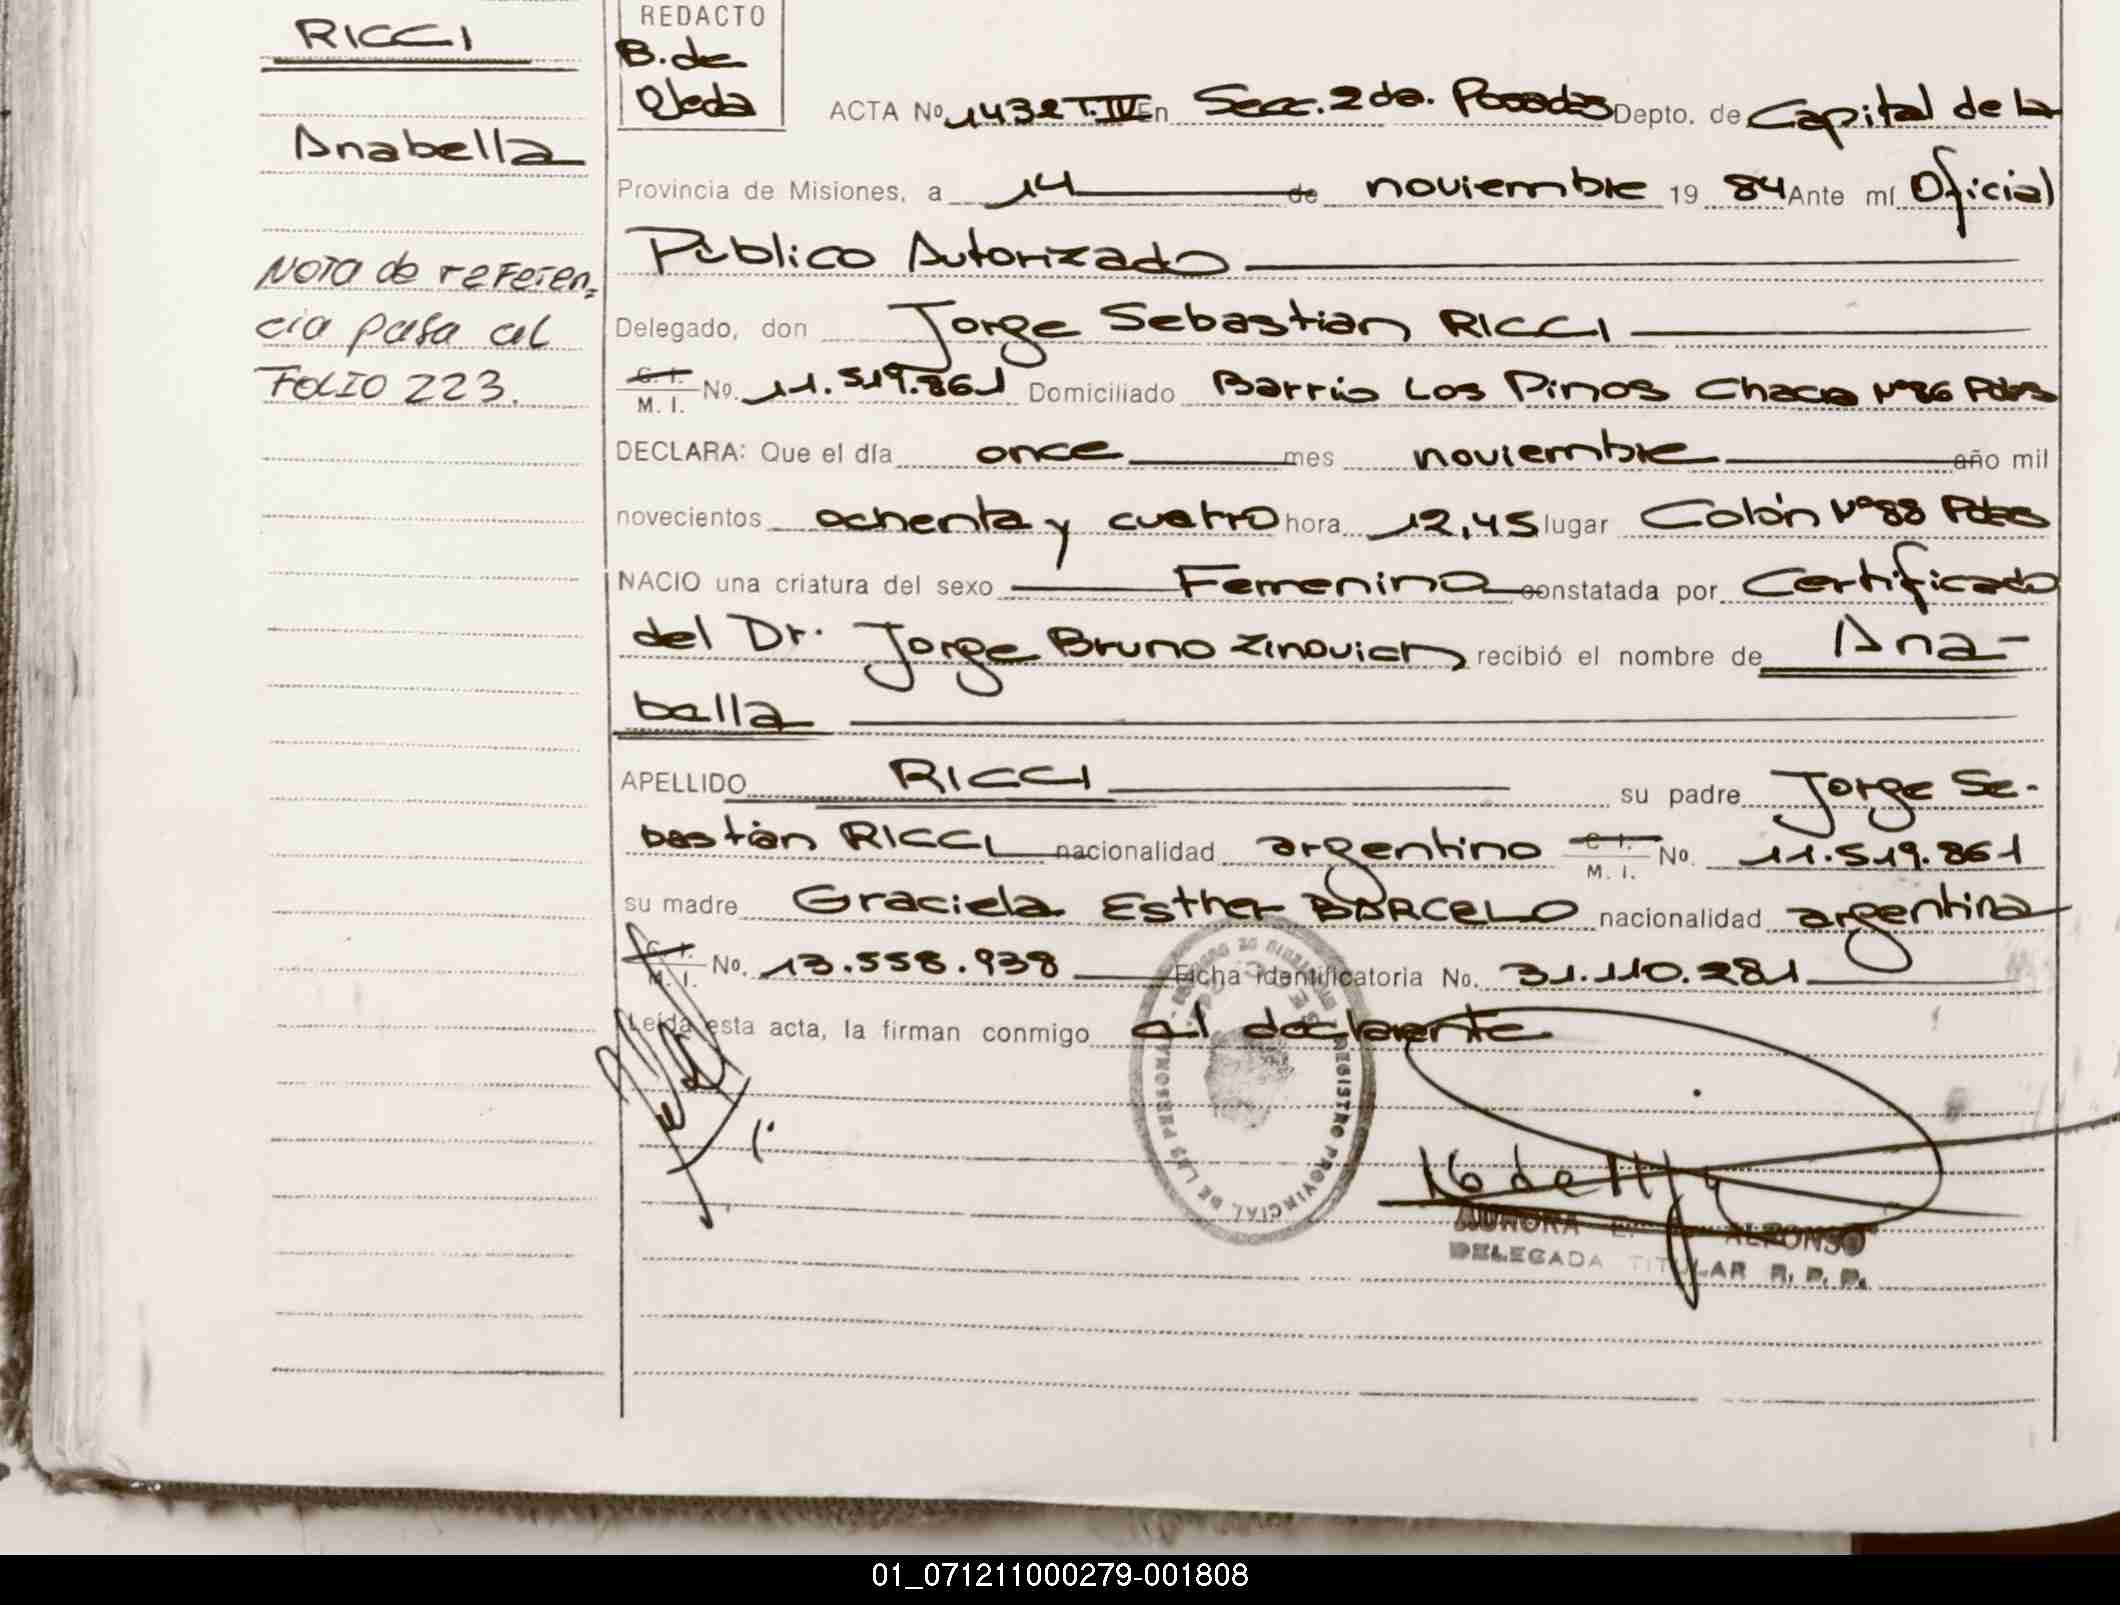 RICCI
Anabella
Nota de referen-
cia pasa al
FOLIO 223.
REDACTO
B. de
Ojeda
ACTA No. 1432 T.IV En Secc. 2da. Posadas Depto. de Capital de la
Provincia de Misiones, a 14 de noviembre 19 84 Ante mí Oficial
Público Autorizado
Delegado, don Jorge Sebastián RICCI
C. I.
M. I. No. 11.519.861 Domiciliado Barrio Los Pinos Chacra Nº86 Pdas
DECLARA: Que el día once mes noviembre año mil
novecientos ochenta y cuatro hora 12,45 lugar Colón Nº88 Pdas
NACIO una criatura del sexo Femenino constatada por Certificado
del Dr. Jorge Bruno Zinovich recibió el nombre de Ana-
bella
APELLIDO RICCI su padre Jorge Se-
bastián RICCI nacionalidad argentino C. I.
M. I. No. 11.519.861
su madre Graciela Esther BARCELO nacionalidad argentina
C. I.
M. I. No. 13.558.938 Ficha identificatoria No. 31.110.281
Leída esta acta, la firman conmigo el declarante
REGISTRO PROVINCIAL DE LAS PERSONAS
AURORA ALFONSO
DELEGADA TITULAR R. P. P.
01_071211000279-001808